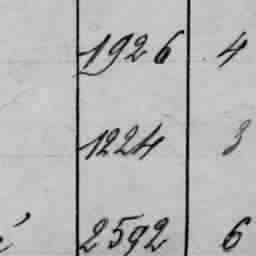 1926 4
1224 3
2592 6